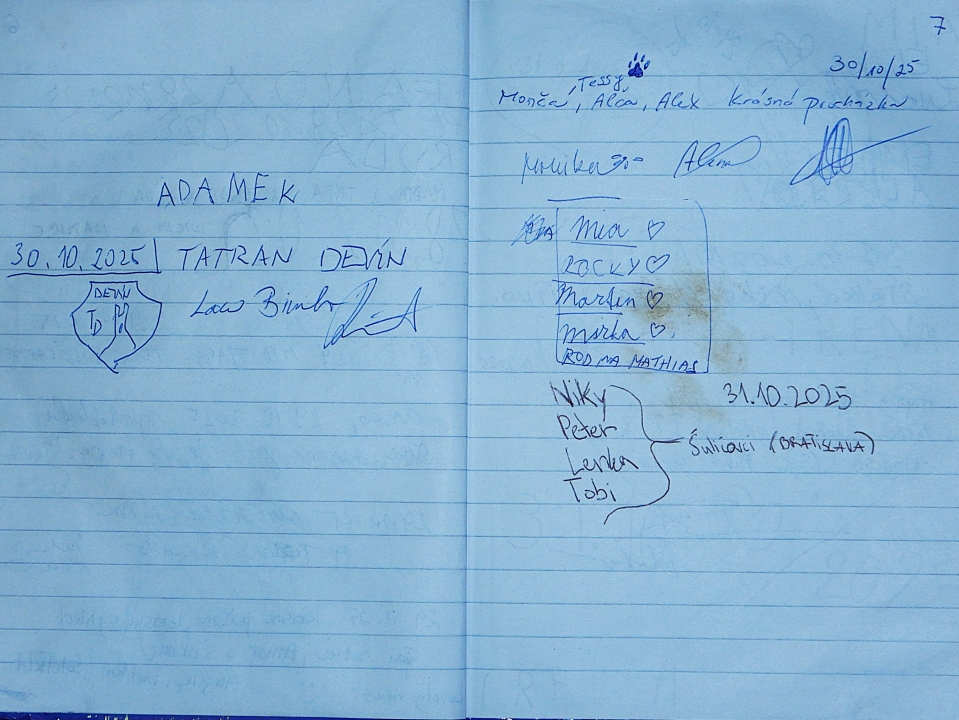 ADAMEK
30.10.2025 TATRAN DEVÍN
DEVÍN
TD
Laco
7
30/10/25
Tessy
Monča, Alča, Alex Krásná procházka
Monika
Alena
Mia ♡
ROCKY ♡
Martin ♡
Mirka ♡
RODINA MATHIAS
Niky
31.10.2025
Peter
Šuličovci (BRATISLAVA)
Lenka
Tobi